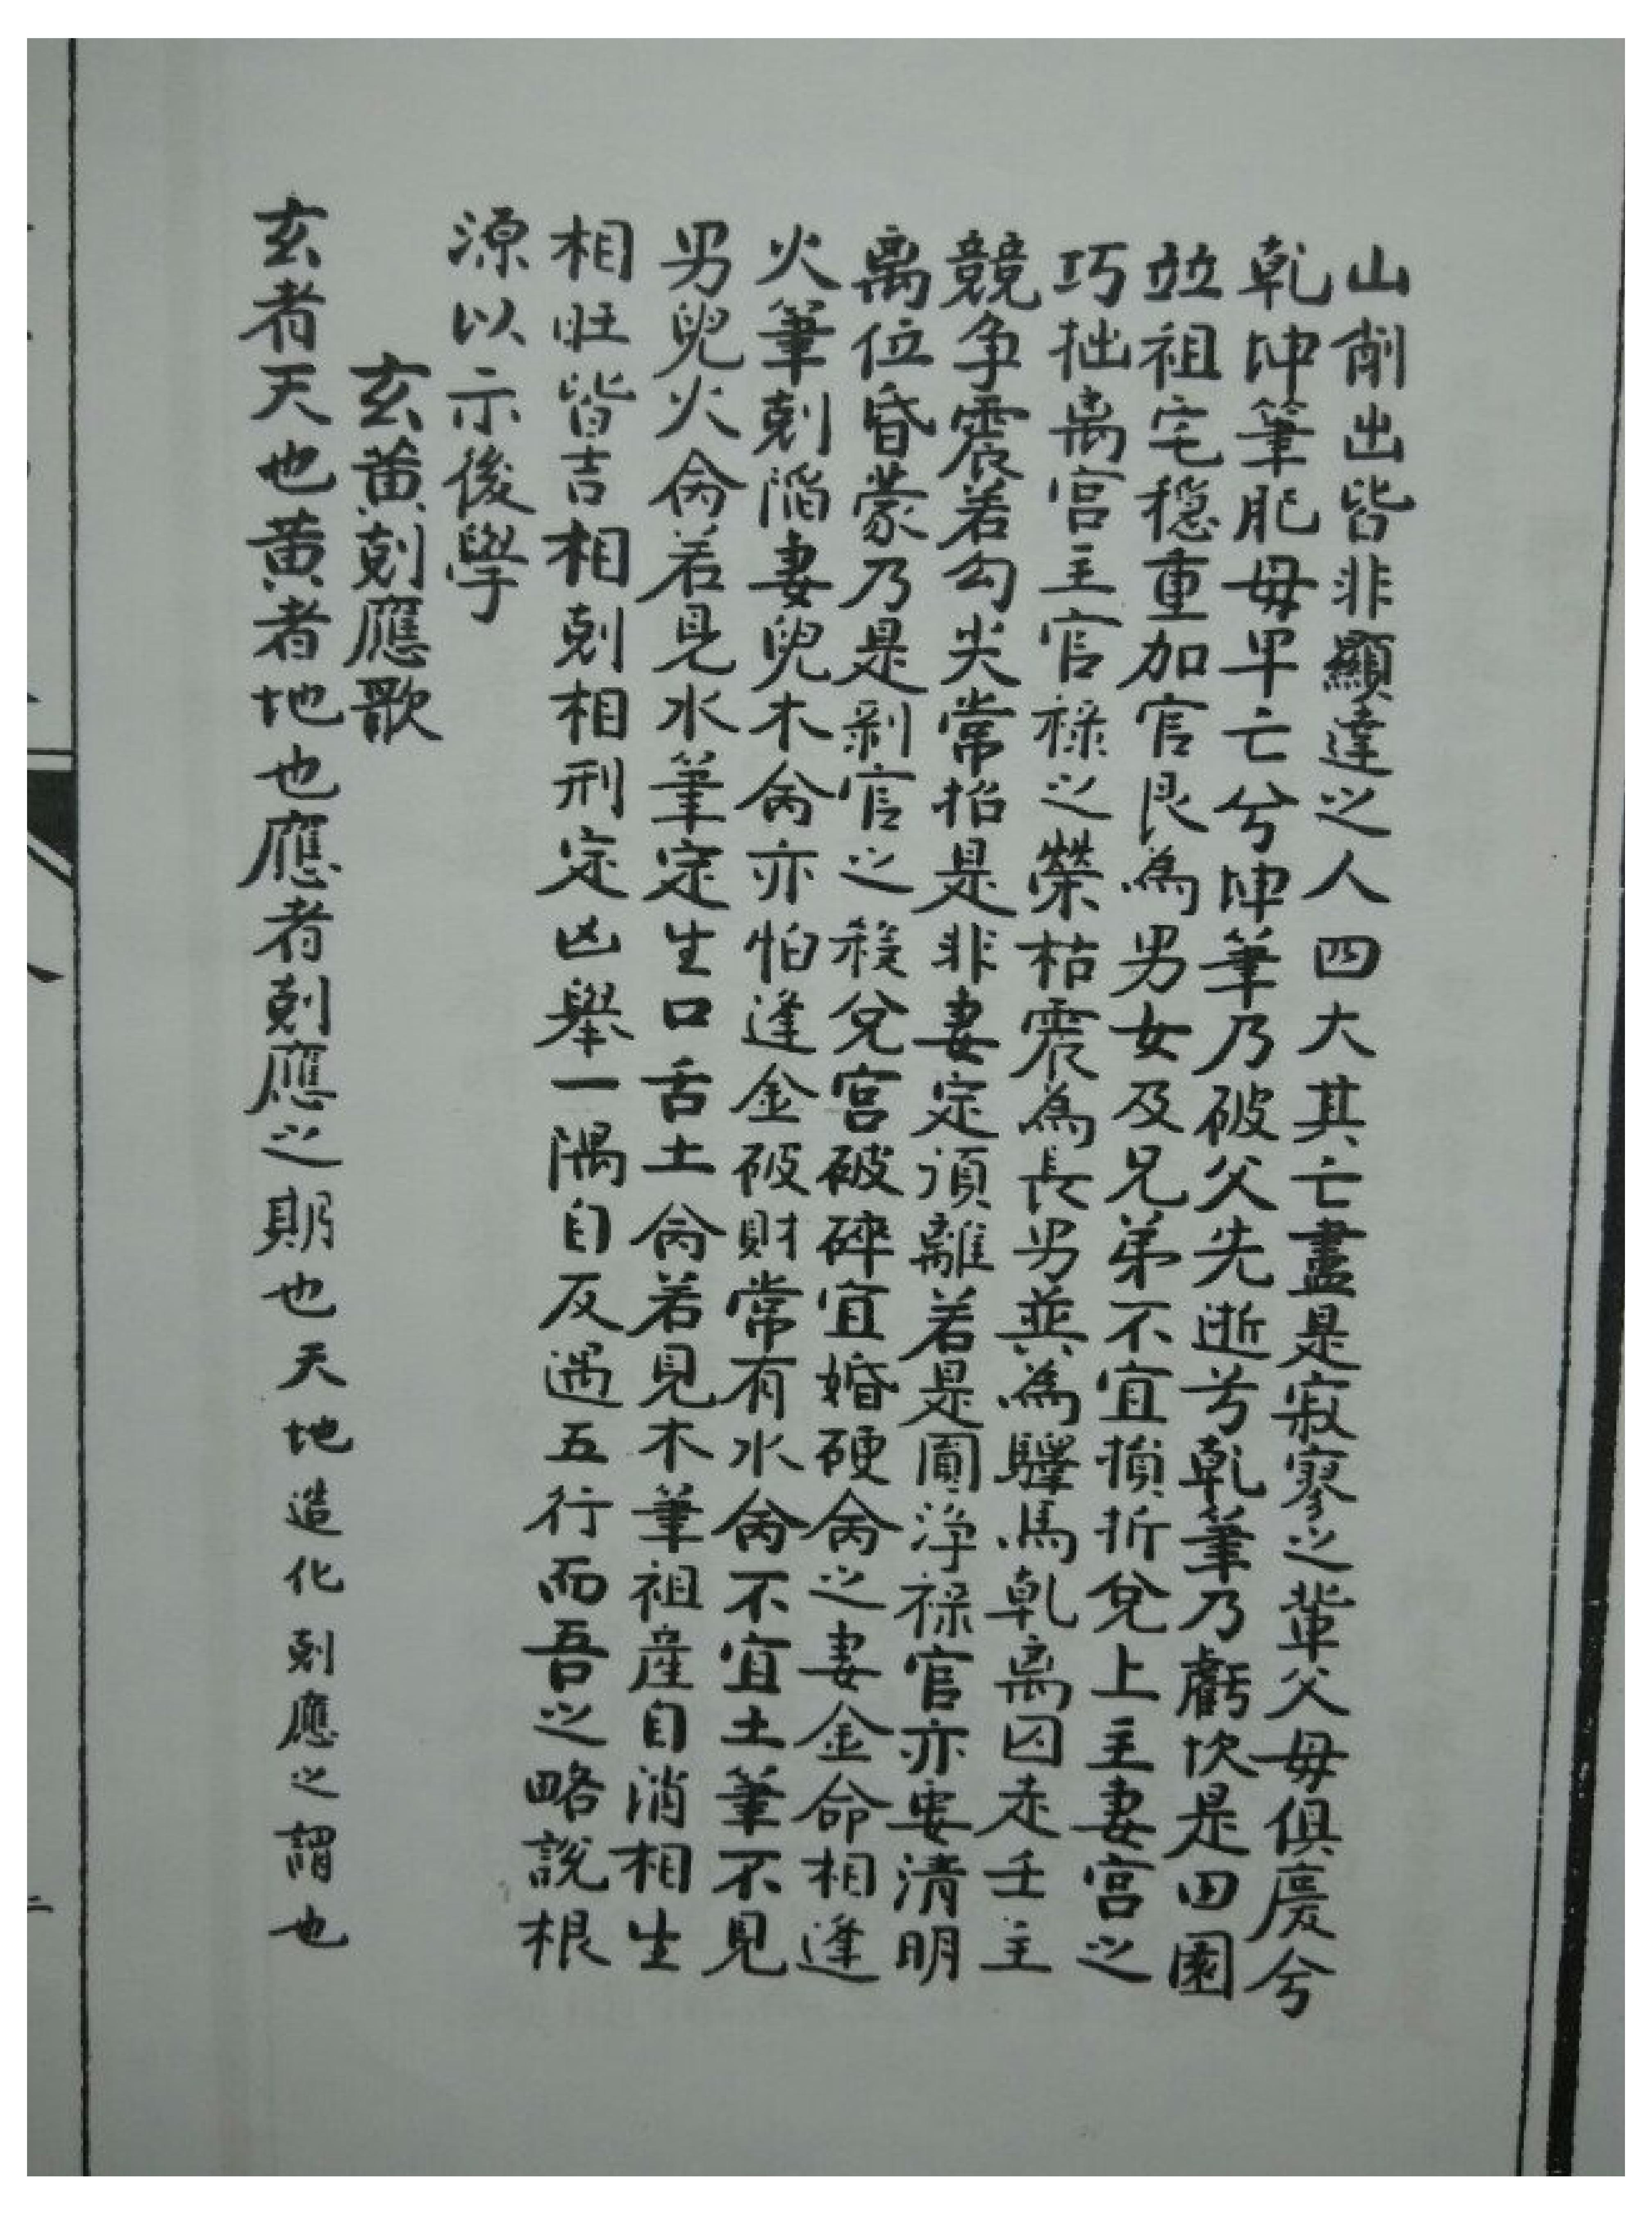 山削出皆非顯達之人四大其亡盡是寂寥之輩父母俱慶兮
乾坤筆肥母早亡兮坤筆乃破父先逝兮乾筆乃虧坎是田園
並祖宅穩重加官艮為男女及兄弟不宜損折兌上主妻宮之
巧拙离宮主官祿之榮枯震為長男並為驛馬乾离囚走壬主
競争震若勾尖常招是非妻定須離若是圓淨祿官亦要清明
离位昏蒙乃是剝官之殺兌宮破碎宜婚硬禽之妻金命相逢
火筆剋陷妻兒木禽亦怕逢金破財常有水禽不宜土筆不見
男兒火禽若見水筆定生口舌土禽若見木筆祖產自消相生
相旺皆吉相剋相刑定凶舉一隅自反遇五行而吾之略說根
源以示後學
玄黄剋應歌
玄者天也黄者地也應者剋應之期也天地造化剋應之謂也
二